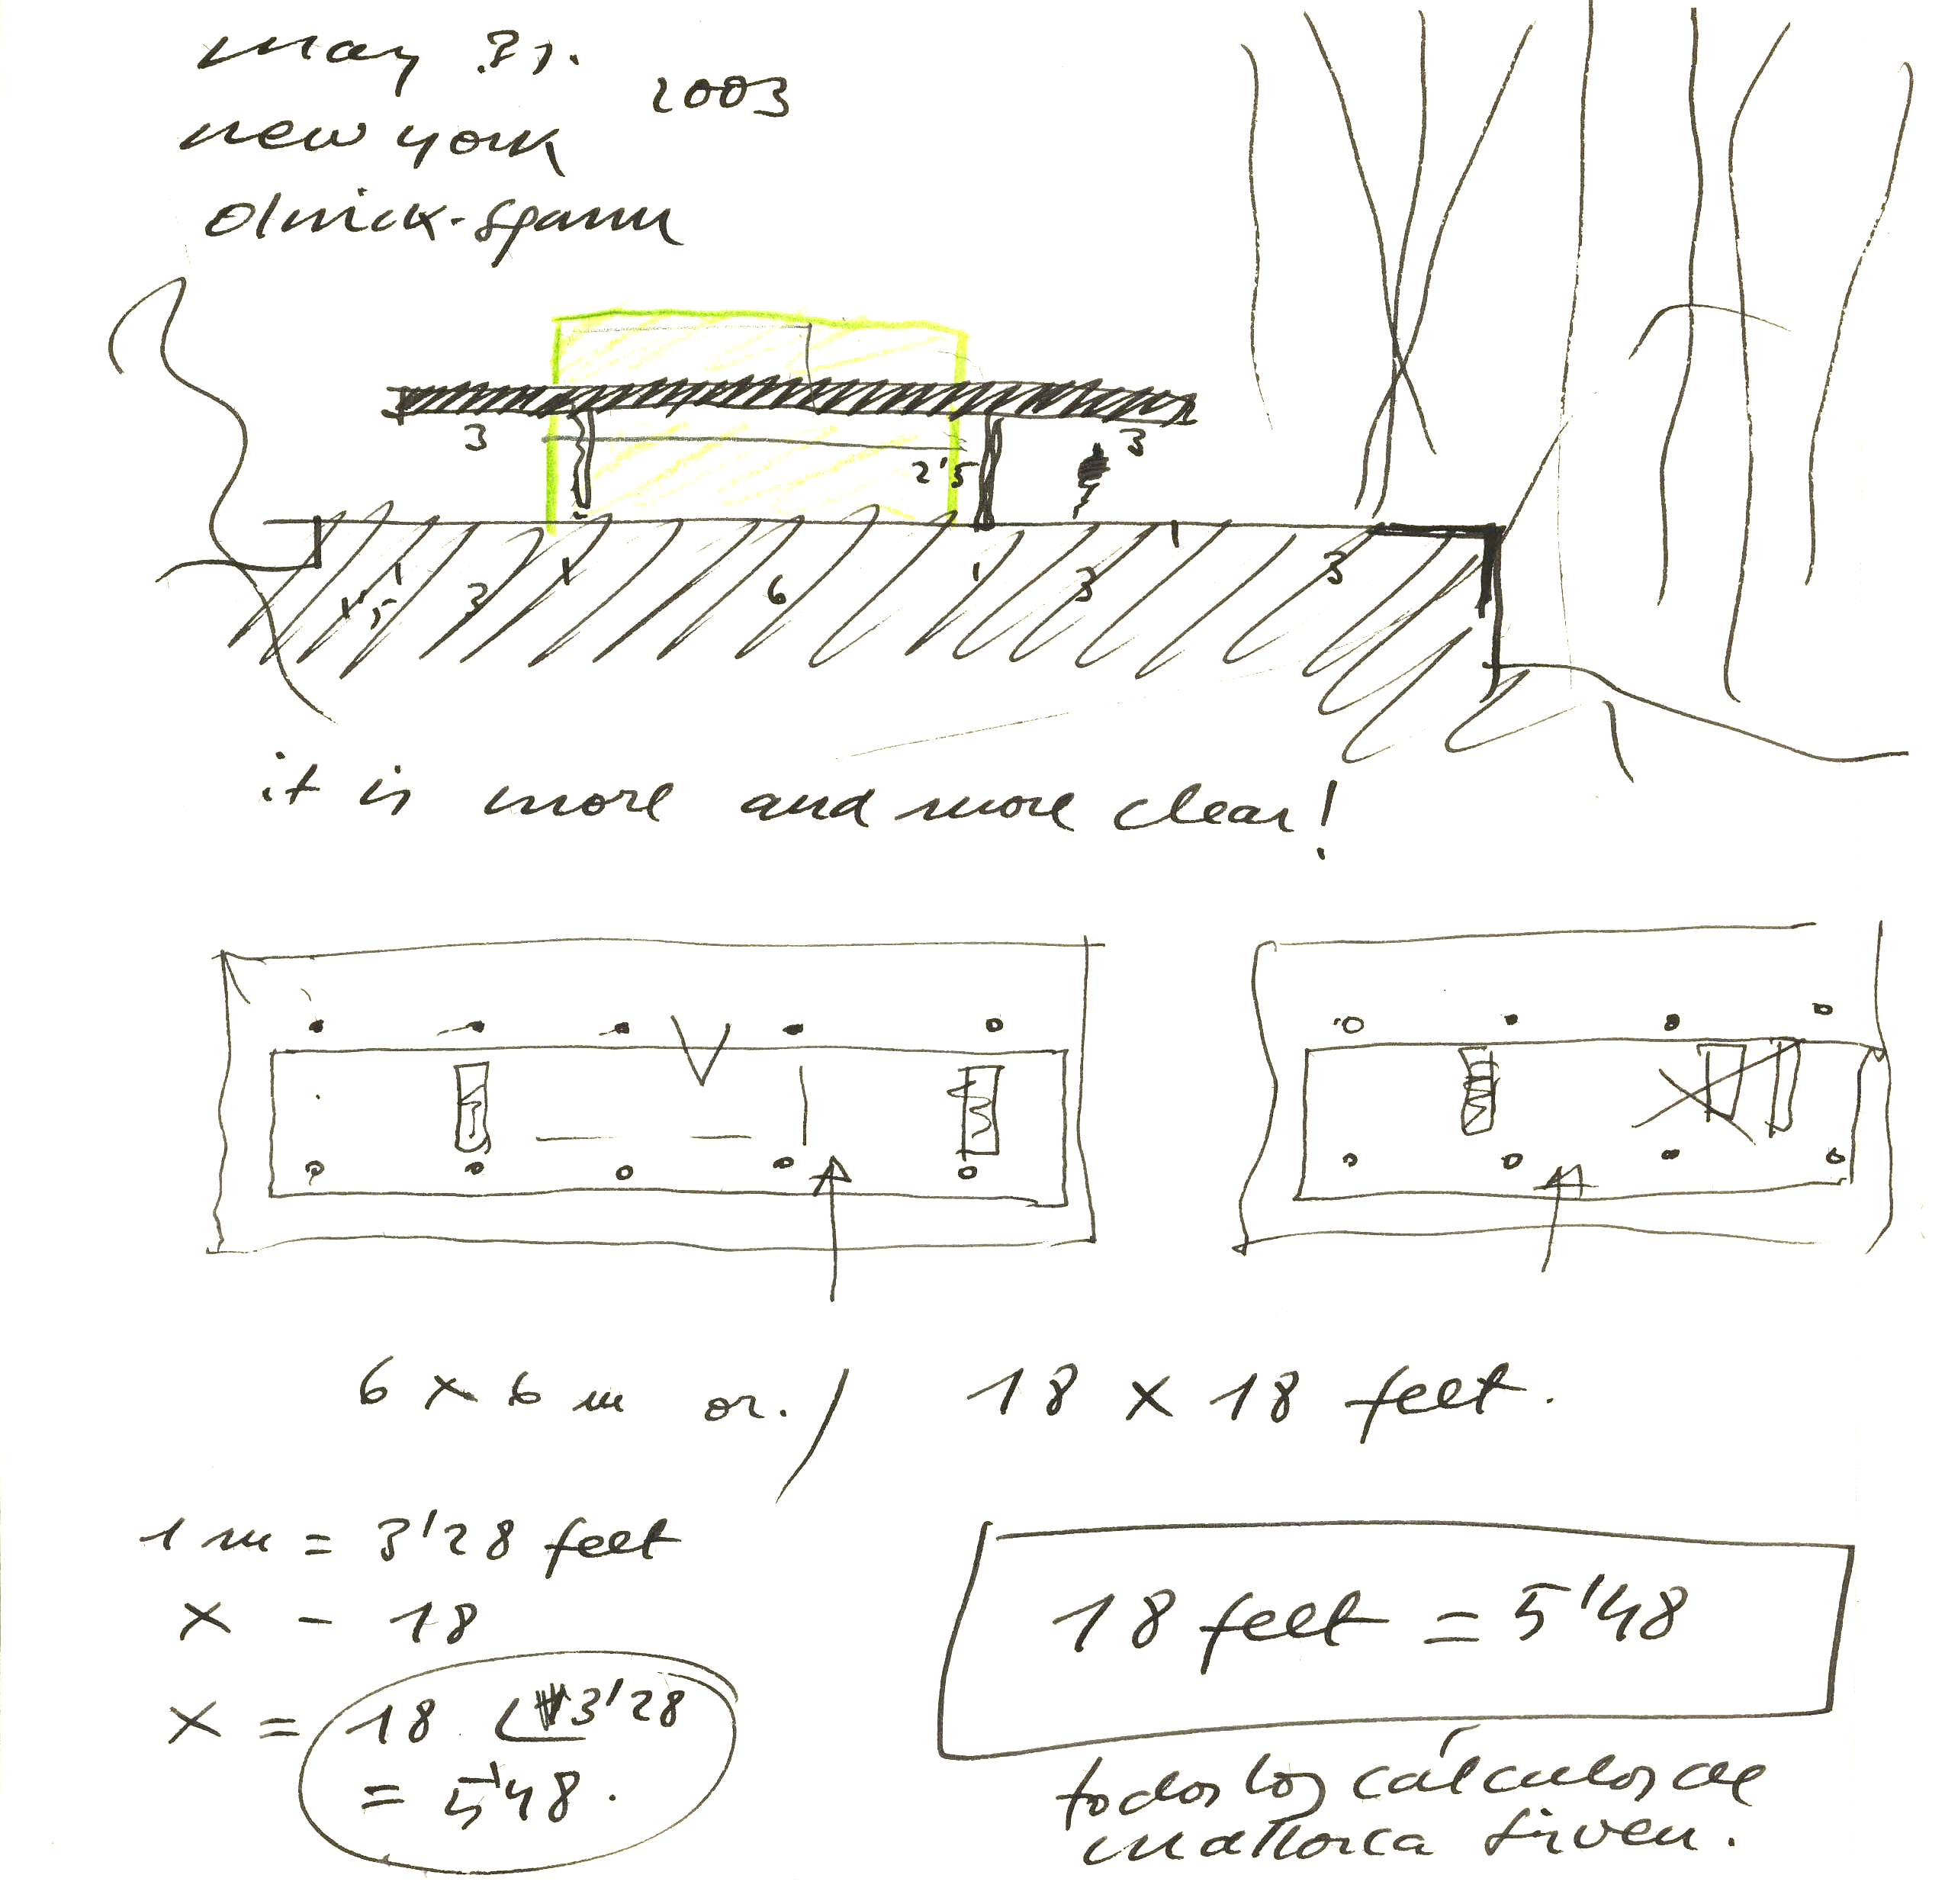 may 31.
2003
new york
olnick-spanu
3
3
2'5
1'5 3 6 3 3
it is more and more clear!
6 x 6 m or. / 18 x 18 feet.
1 m = 3'28 feet
x - 18
x = 18 3'28
= 5'48.
18 feet = 5'48
todos los cálculos de
mallorca sirven.